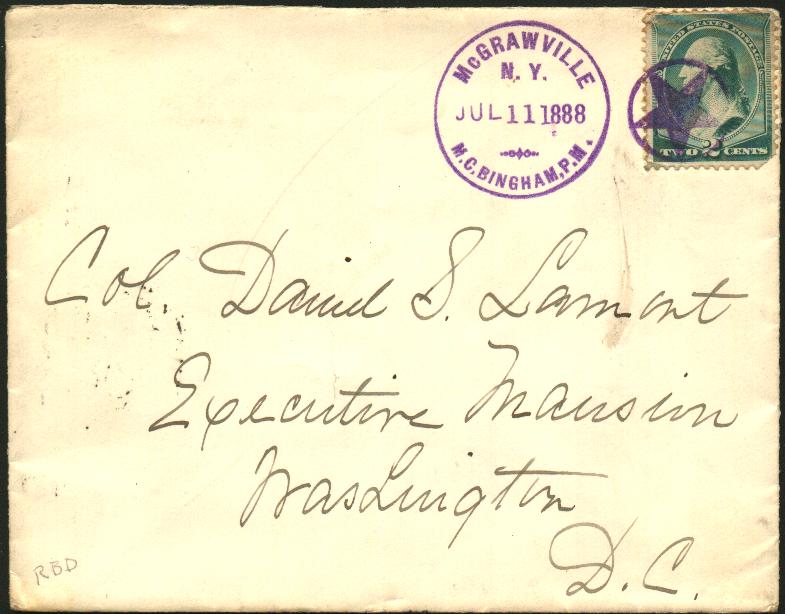 McGRAWVILLE
N. Y.
JUL 11 1888
M.C. BINGHAM, P.M.
UNITED STATES POSTAGE
TWO 2 CENTS
Col. Daniel S. Lamont
Executive Mansion
Washington
D.C.
RBD